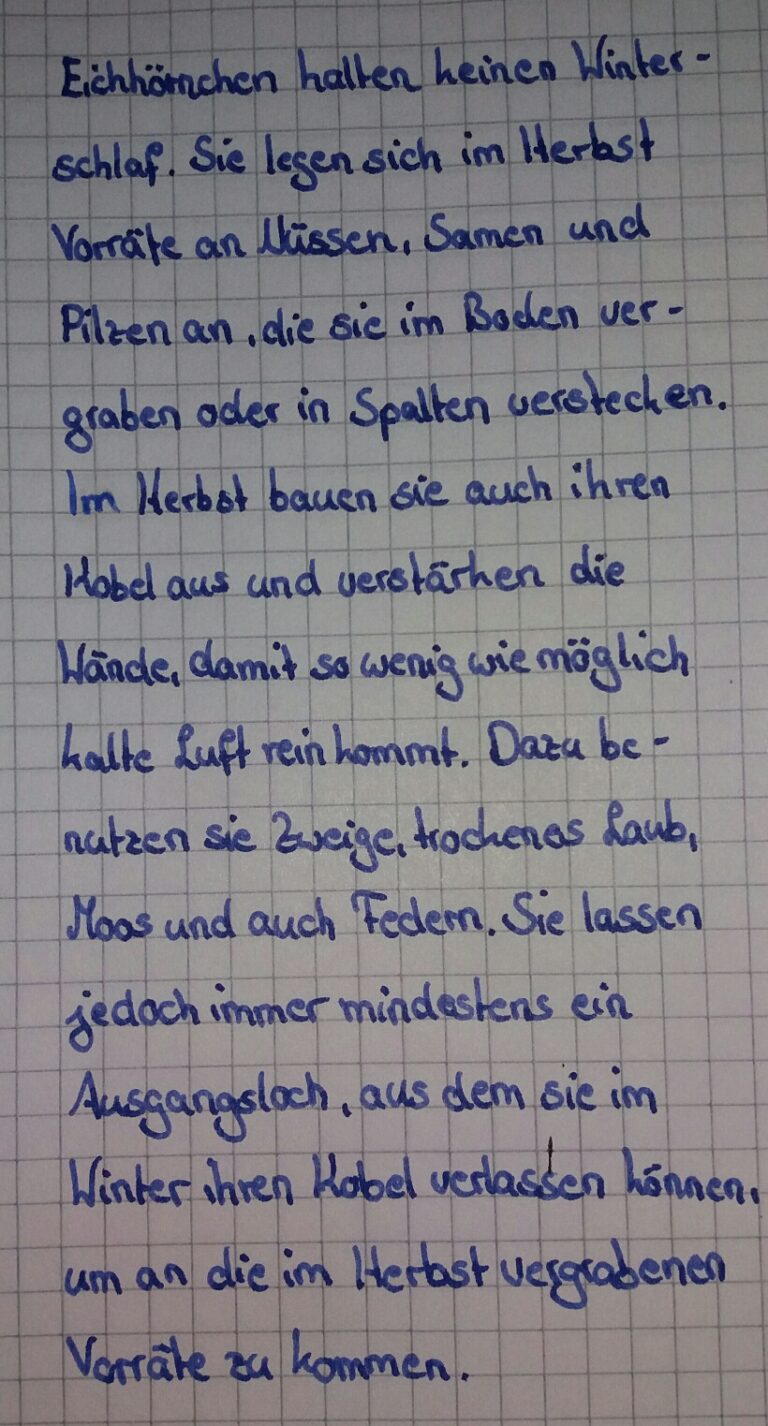 Eichhörnchen halten keinen Winter-
schlaf. Sie legen sich im Herbst
Vorräte an Nüssen, Samen und
Pilzen an, die sie im Boden ver-
graben oder in Spalten verstecken.
Im Herbst bauen sie auch ihren
Kobel aus und verstärken die
Wände, damit so wenig wie möglich
kalte Luft rein kommt. Dazu be-
nutzen sie Zweige, trockenes Laub,
Moos und auch Federn. Sie lassen
jedoch immer mindestens ein
Ausgangsloch, aus dem sie im
Winter ihren Kobel verlassen können,
um an die im Herbst vergrabenen
Vorräte zu kommen.